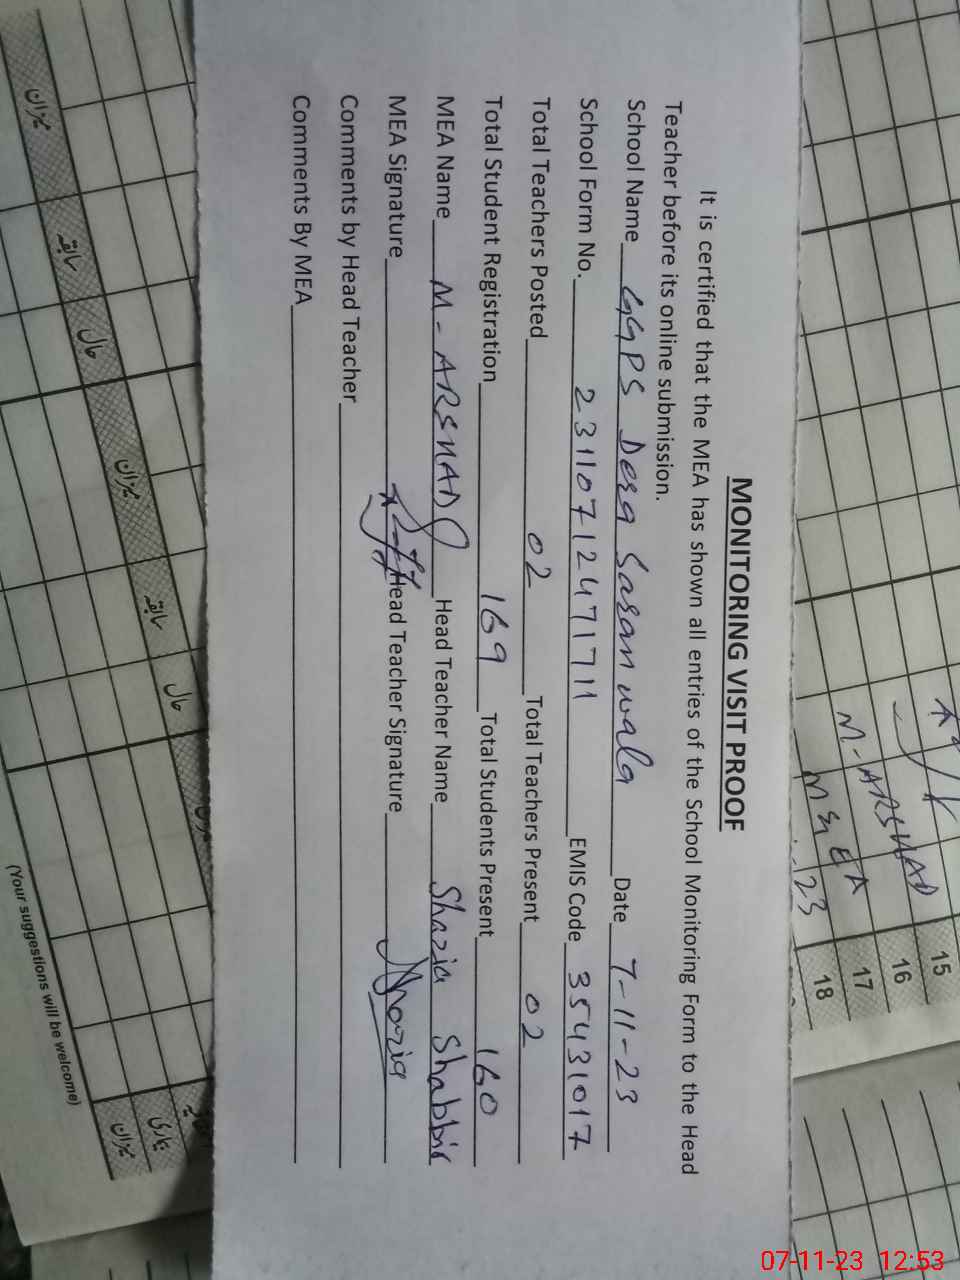 MONITORING VISIT PROOF
It is certified that the MEA has shown all entries of the School Monitoring Form to the Head
Teacher before its online submission.
School Name GGPS Dera Saran wala Date 7-11-23
School Form No. 23110712471711 EMIS Code 35431017
Total Teachers Posted 02 Total Teachers Present 02
Total Student Registration 169 Total Students Present 160
MEA Name M-ARSHAD Head Teacher Name Shazia Shabbir
MEA Signature Head Teacher Signature Shazia
Comments by Head Teacher
Comments By MEA
M-ARSHAD
MEA
23
15
16
17
18
میزان
سابقہ
حال
میزان
سابقہ
حال
میزان
(Your suggestions will be welcome)
07-11-23 12:53